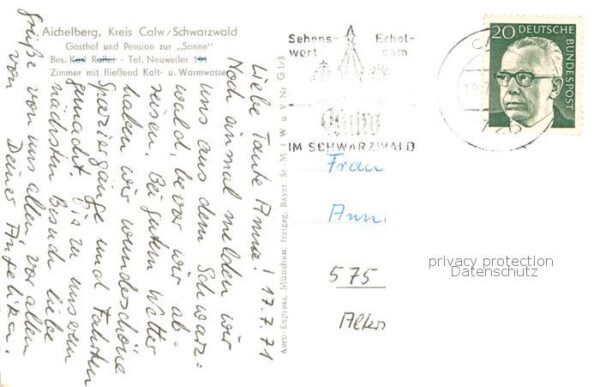 Aichelberg, Kreis Calw/Schwarzwald
Gasthof und Pension zur „Sonne"
Bes. Karl Roller - Tel. Neuweiler 191
Zimmer mit fließend Kalt- u. Warmwasser
Liebe Tante Anna! 17.7.71
Noch einmal melden wir
uns aus dem Schwarz-
wald, bevor wir ab-
reisen. Bei gutem Wetter
haben wir wunderschöne
Spaziergänge und Fahrten
gemacht. Bis zu unserem
nächsten Besuch liebe
Grüße von uns allen, vor allem
von Deiner Angelika.
Aero-Express, München, freigeg. Bayer. St. M. f. W. u. V. Nr. G
Sehens-
wert
Erhol-
sam
Calw
IM SCHWARZWALD
20 DEUTSCHE
BUNDESPOST
726
Frau
Ann
575
privacy protection
Datenschutz